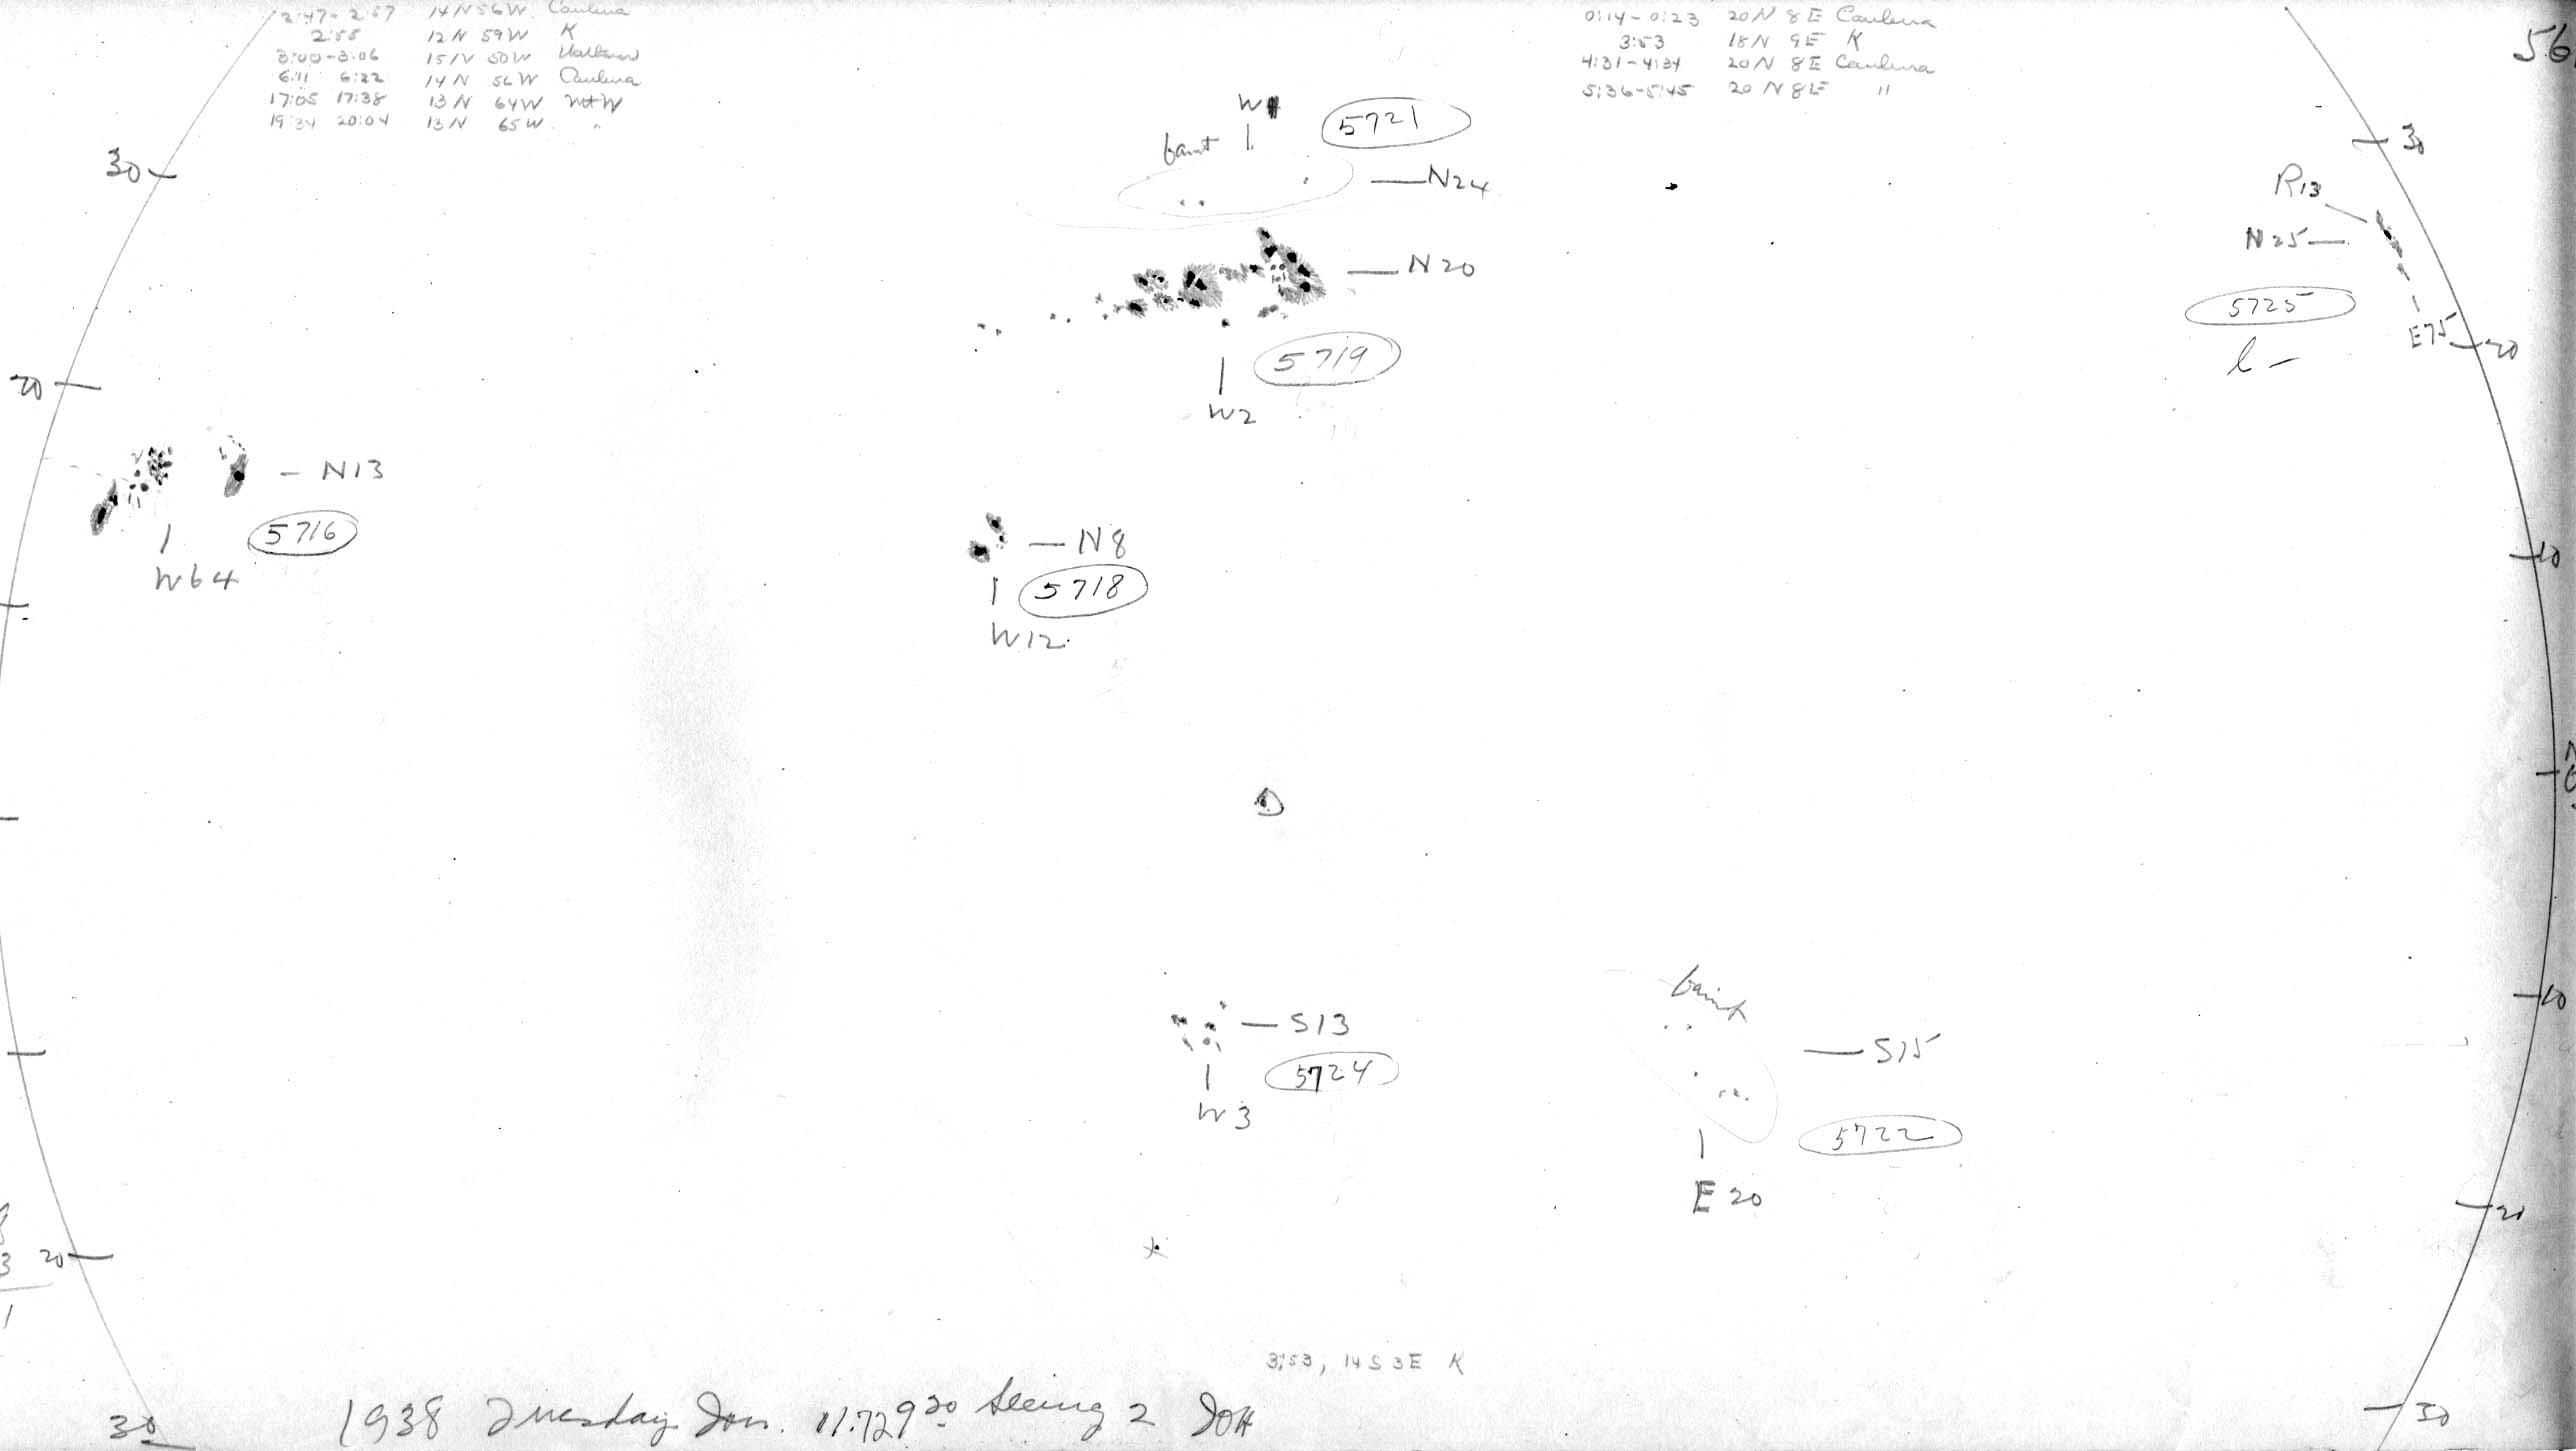 2:47-2:57 14N 56W Canberra
2:55 12N 59W K
3:00-3:06 15N 50W
6:11 6:22 14N 56W Canberra
17:05 17:38 13N 64W MtW
19:34 20:04 13N 65W "
0:14-0:23 20N 8E Canberra
3:53 18N 9E K
4:31-4:34 20N 8E Canberra
5:36-5:45 20N 8E "
56
W
faint
5721
N24
30
30
R13
N25
5725
E75
l -
20
N20
5719
W2
20
N13
5716
W64
N8
5718
W12
10
D
10
S13
5724
W3
faint
S15
5722
E20
20
3 20
1
3:53, 14S 3E K
30
1938 Tuesday Jan. 11.729 20 Seeing 2 JOH
30